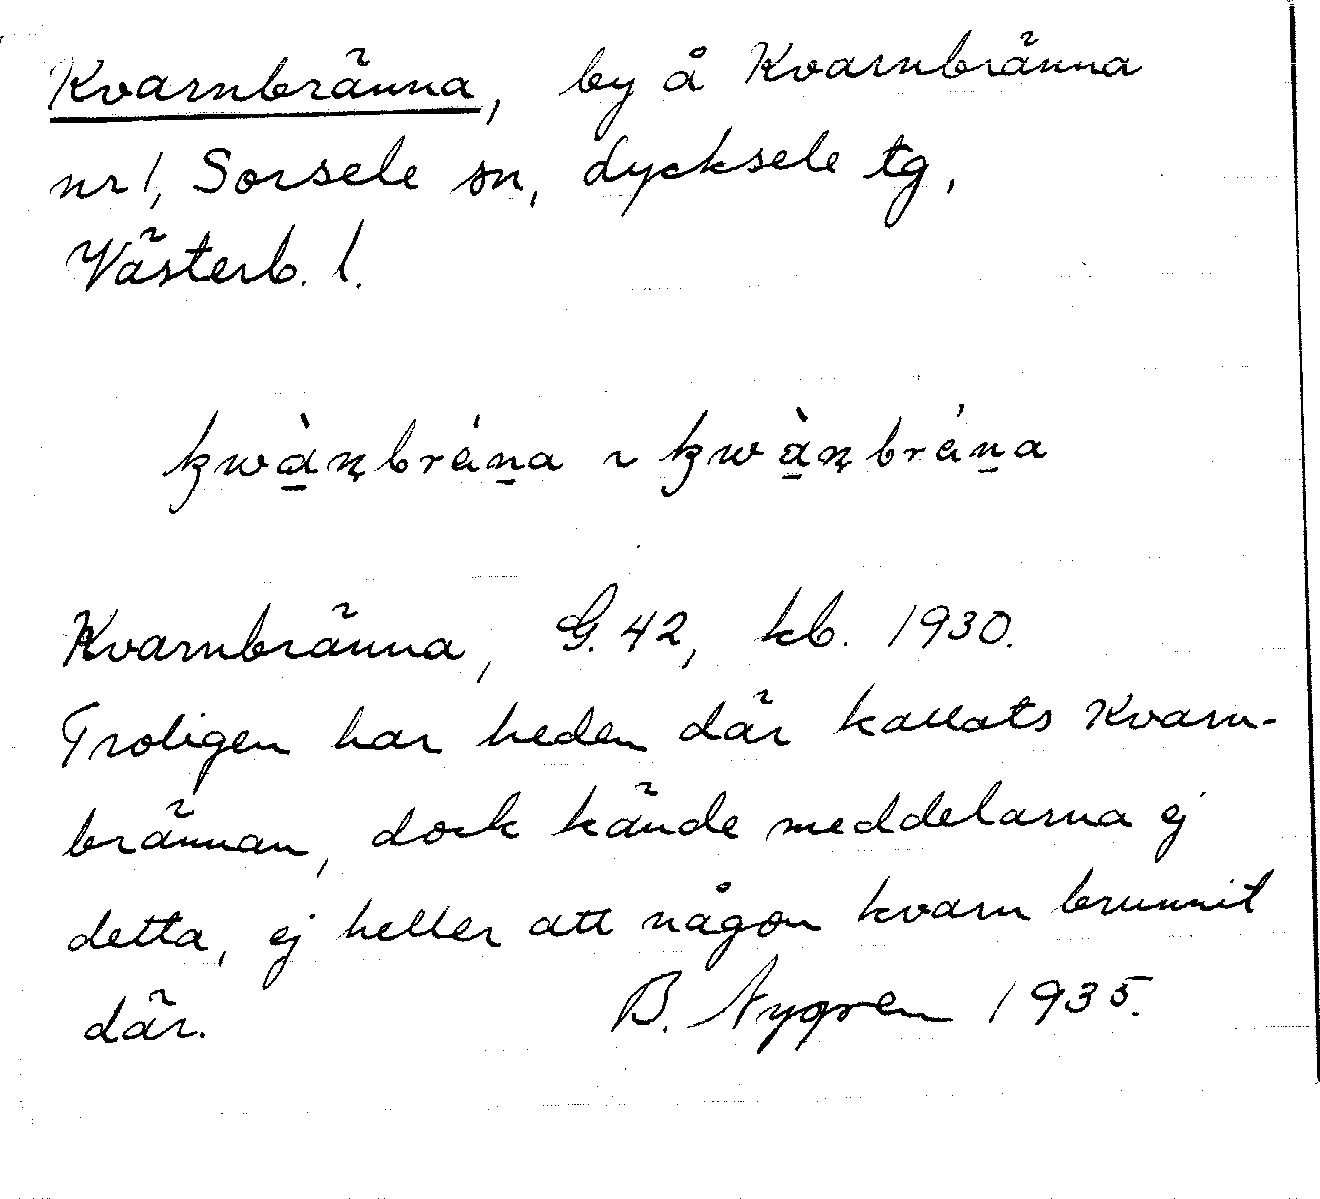 Kvarnbränna, by å Kvarnbränna
nr 1, Sorsele sn, Lycksele tg,
Västerb. l.
kwàṇbrána ~ kwàṇbrána
Kvarnbränna, G. 42, kb. 1930.
Troligen har heden där kallats Kvarn-
brännan, dock kände meddelarna ej
detta, ej heller att någon kvarn brunnit
där. B. Nygren 1935.